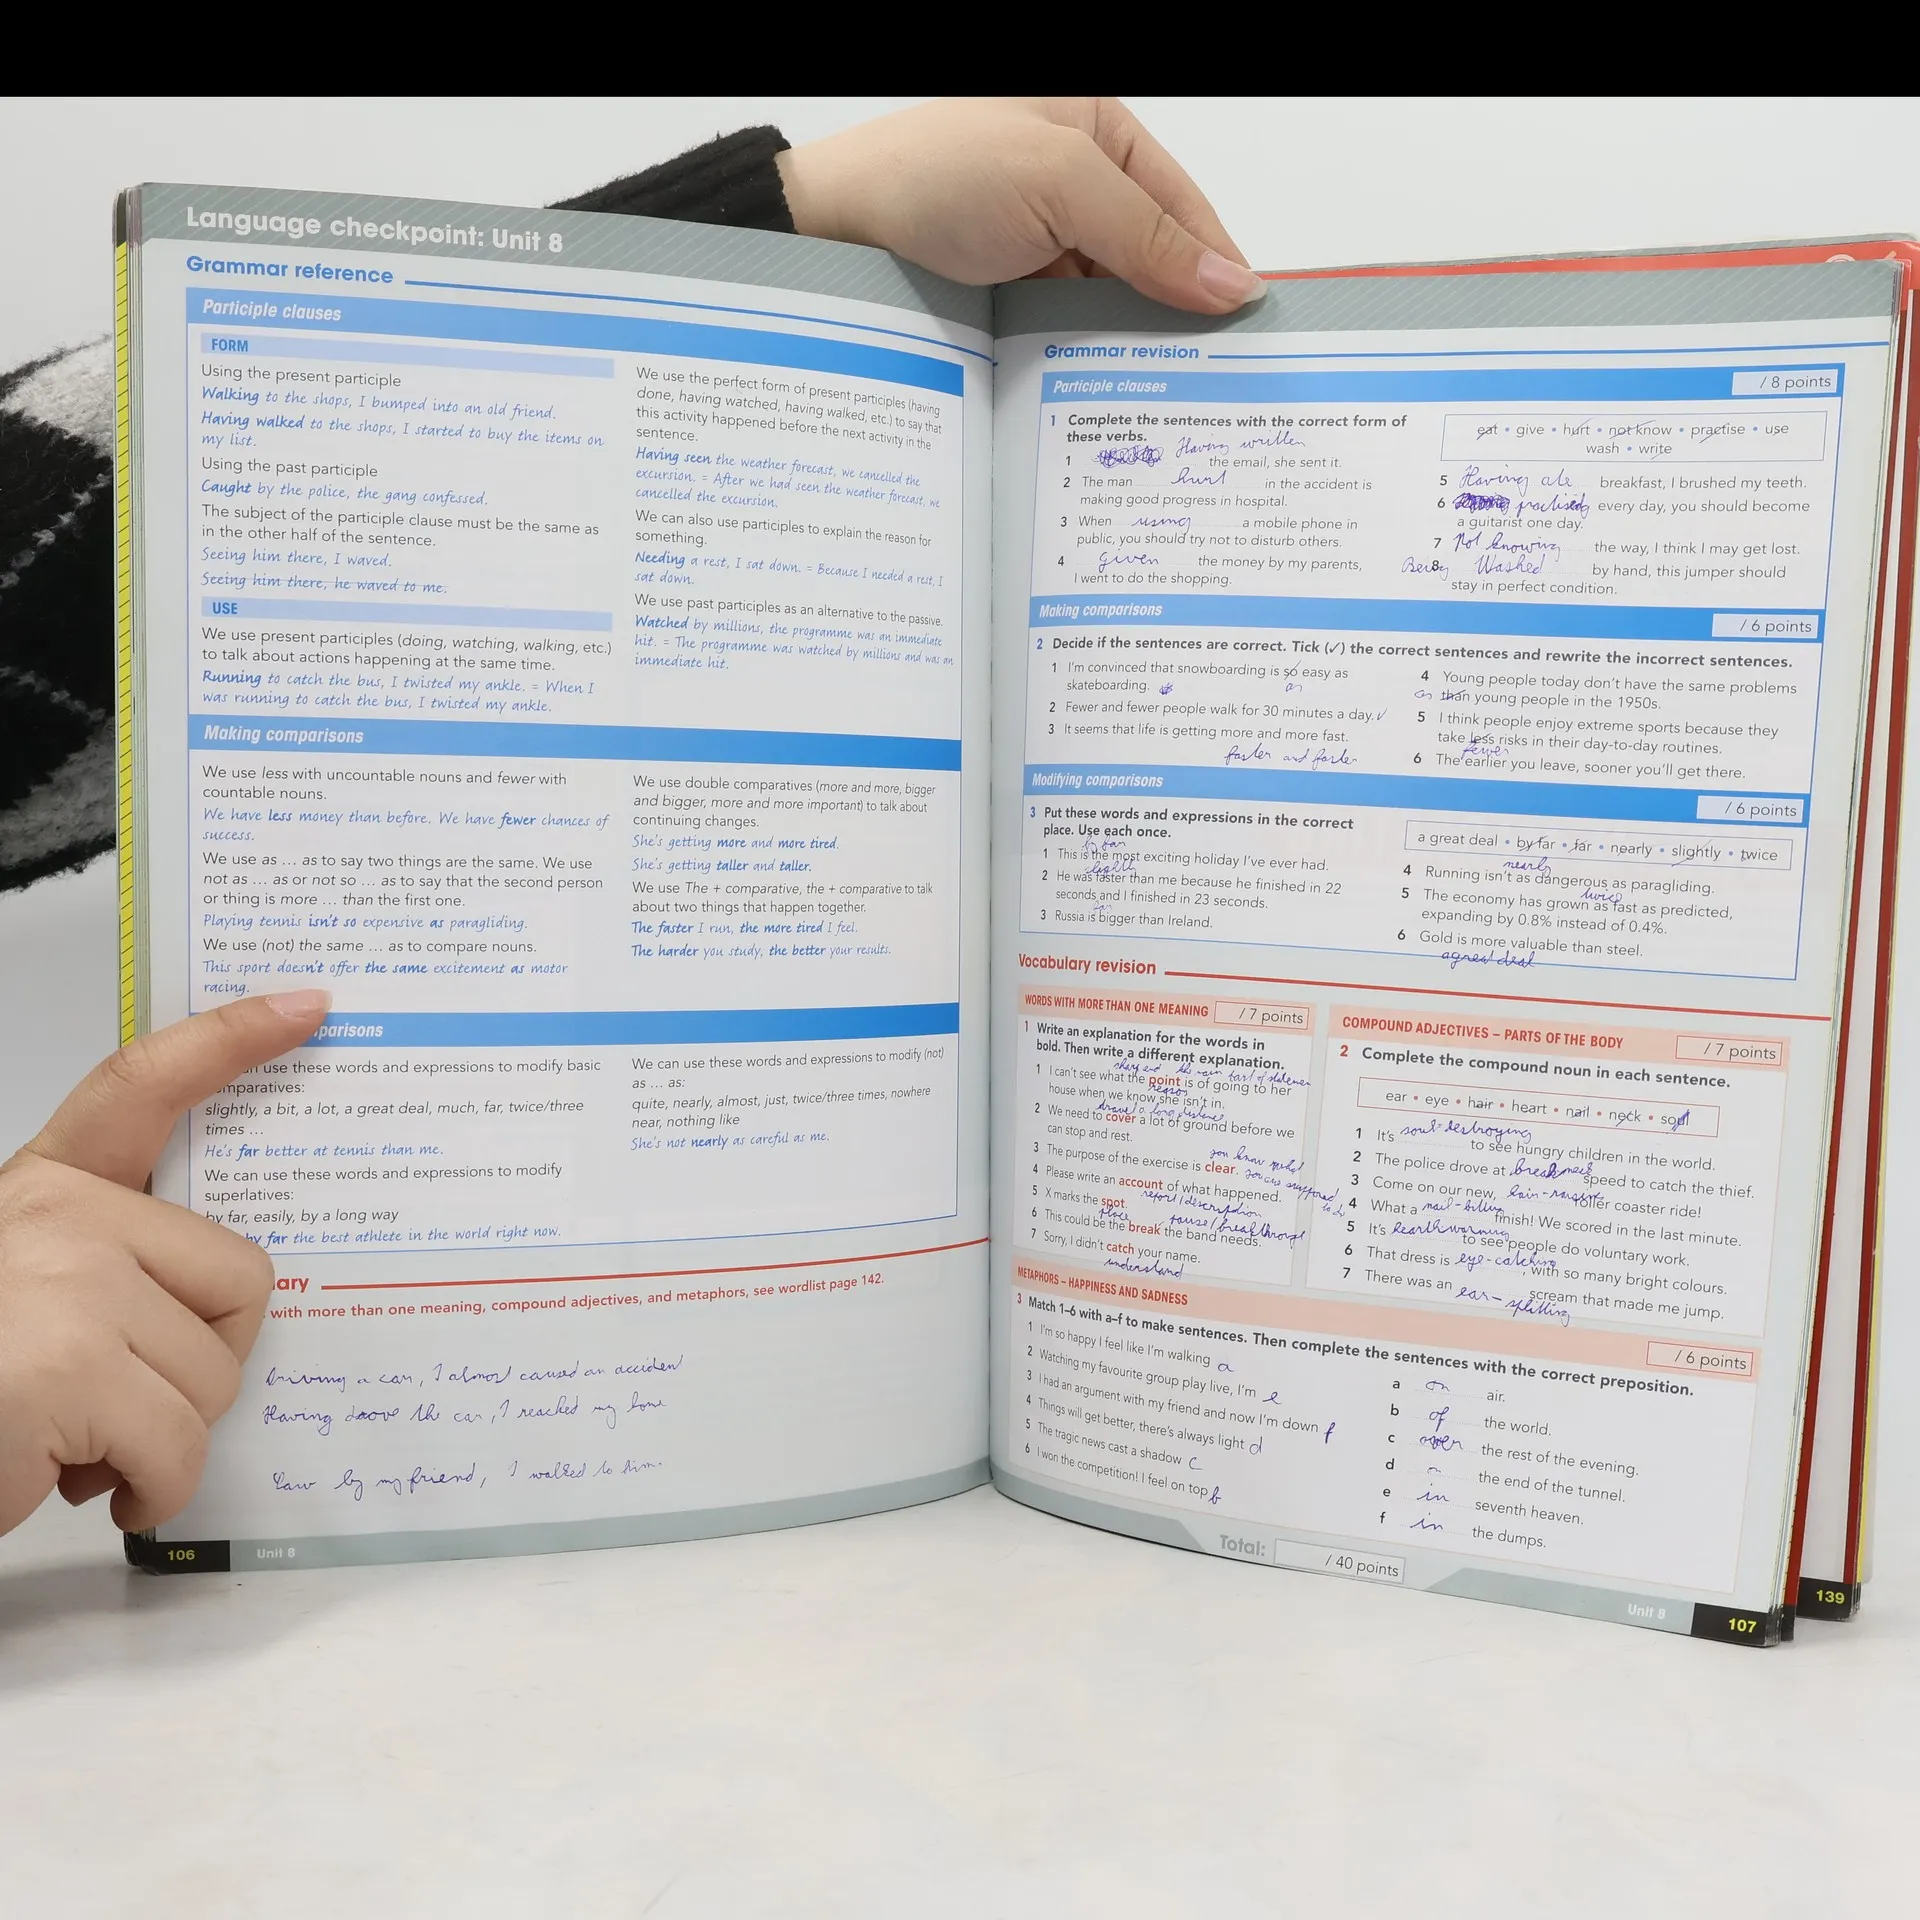 Language checkpoint: Unit 8
Grammar reference
Participle clauses
FORM
Using the present participle
Walking to the shops, I bumped into an old friend.
Having walked to the shops, I started to buy the items on
my list.
Using the past participle
Caught by the police, the gang confessed.
The subject of the participle clause must be the same as
in the other half of the sentence.
Seeing him there, I waved.
Seeing him there, he waved to me.
USE
We use present participles (doing, watching, walking, etc.)
to talk about actions happening at the same time.
Running to catch the bus, I twisted my ankle. = When I
was running to catch the bus, I twisted my ankle.
We use the perfect form of present participles (having
done, having watched, having walked, etc.) to say that
this activity happened before the next activity in the
sentence.
Having seen the weather forecast, we cancelled the
excursion. = After we had seen the weather forecast, we
cancelled the excursion.
We can also use participles to explain the reason for
something.
Needing a rest, I sat down. = Because I needed a rest, I
sat down.
We use past participles as an alternative to the passive.
Watched by millions, the programme was an immediate
hit. = The programme was watched by millions and was an
immediate hit.
Making comparisons
We use less with uncountable nouns and fewer with
countable nouns.
We have less money than before. We have fewer chances of
success.
We use as ... as to say two things are the same. We use
not as ... as or not so ... as to say that the second person
or thing is more ... than the first one.
Playing tennis isn't so expensive as paragliding.
We use (not) the same ... as to compare nouns.
This sport doesn't offer the same excitement as motor
racing.
We use double comparatives (more and more, bigger
and bigger, more and more important) to talk about
continuing changes.
She's getting more and more tired.
She's getting taller and taller.
We use The + comparative, the + comparative to talk
about two things that happen together.
The faster I run, the more tired I feel.
The harder you study, the better your results.
parisons
use these words and expressions to modify basic
mparatives:
slightly, a bit, a lot, a great deal, much, far, twice/three
times ...
He's far better at tennis than me.
We can use these words and expressions to modify
superlatives:
by far, easily, by a long way
by far the best athlete in the world right now.
We can use these words and expressions to modify (not)
as ... as:
quite, nearly, almost, just, twice/three times, nowhere
near, nothing like
She's not nearly as careful as me.
lary
with more than one meaning, compound adjectives, and metaphors, see wordlist page 142.
Driving a car, I almost caused an accident
Having drove the car, I reached my home
Saw by my friend, I walked to him.
106 Unit 8
Grammar revision
Participle clauses
/ 8 points
1 Complete the sentences with the correct form of
these verbs.
eat • give • hurt • not know • practise • use
wash • write
1 Having written the email, she sent it.
2 The man hurt in the accident is
making good progress in hospital.
3 When using a mobile phone in
public, you should try not to disturb others.
4 given the money by my parents,
I went to do the shopping.
5 Having ate breakfast, I brushed my teeth.
6 practising every day, you should become
a guitarist one day.
7 Not knowing the way, I think I may get lost.
8 Being Washed by hand, this jumper should
stay in perfect condition.
Making comparisons
/ 6 points
2 Decide if the sentences are correct. Tick (✓) the correct sentences and rewrite the incorrect sentences.
1 I'm convinced that snowboarding is so easy as
skateboarding. as
2 Fewer and fewer people walk for 30 minutes a day. ✓
3 It seems that life is getting more and more fast.
faster and faster
4 Young people today don't have the same problems
as than young people in the 1950s.
5 I think people enjoy extreme sports because they
take less risks in their day-to-day routines.
fewer
6 The earlier you leave, sooner you'll get there.
Modifying comparisons
/ 6 points
3 Put these words and expressions in the correct
place. Use each once.
a great deal • by far • far • nearly • slightly • twice
by far
1 This is the most exciting holiday I've ever had.
slightly
2 He was faster than me because he finished in 22
seconds and I finished in 23 seconds.
far
3 Russia is bigger than Ireland.
nearly
4 Running isn't as dangerous as paragliding.
twice
5 The economy has grown as fast as predicted,
expanding by 0.8% instead of 0.4%.
6 Gold is more valuable than steel.
a great deal
Vocabulary revision
WORDS WITH MORE THAN ONE MEANING
/ 7 points
1 Write an explanation for the words in
bold. Then write a different explanation.
sharp end the main part of
1 I can't see what the point is of going to her
reason
house when we know she isn't in.
travel a long distance
2 We need to cover a lot of ground before we
can stop and rest.
you know what
3 The purpose of the exercise is clear. you are supposed
to do
4 Please write an account of what happened.
report / description
5 X marks the spot.
place pause / breakthrough
6 This could be the break the band needs.
7 Sorry, I didn't catch your name.
understand
COMPOUND ADJECTIVES – PARTS OF THE BODY
/ 7 points
2 Complete the compound noun in each sentence.
ear • eye • hair • heart • nail • neck • soul
1 It's soul-destroying to see hungry children in the world.
2 The police drove at break neck speed to catch the thief.
3 Come on our new, hair-raising roller coaster ride!
4 What a nail-biting finish! We scored in the last minute.
5 It's hearthwarming to see people do voluntary work.
6 That dress is eye-catching, with so many bright colours.
7 There was an ear-splitting scream that made me jump.
METAPHORS – HAPPINESS AND SADNESS
/ 6 points
3 Match 1–6 with a–f to make sentences. Then complete the sentences with the correct preposition.
1 I'm so happy I feel like I'm walking a
2 Watching my favourite group play live, I'm e
3 I had an argument with my friend and now I'm down f
4 Things will get better, there's always light d
5 The tragic news cast a shadow c
6 I won the competition! I feel on top b
a on air.
b of the world.
c over the rest of the evening.
d the end of the tunnel.
e in seventh heaven.
f in the dumps.
Total: / 40 points
Unit 8 107
139